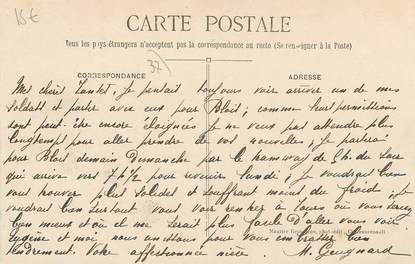 15€
CARTE POSTALE
Tous les pays étrangers n'acceptent pas la correspondance au recto (Se renseigner à la Poste)
37)
CORRESPONDANCE
ADRESSE
je pensais toujours voir arriver un de mes
soldats et partir avec eux pour Blois; comme leurs permissions
sont peut-être encore éloignées je ne veux pas attendre plus
longtemps pour aller prendre de vos nouvelles; je partirai
pour Blois demain Dimanche par le tramway de 5h. du soir
qui arrive vers 7h½ pour revenir lundi; je voudrais bien
vous trouver plus solides et souffrant moins du froid. je
voudrais bien surtout vous voir rentrer à Tours où vous seriez
bien mieux et où il me serait plus facile d'aller vous voir
Maurice
Eugène et moi nous unissons pour vous embrasser bien
tendrement. Votre affectionnée nièce. M. Guignard